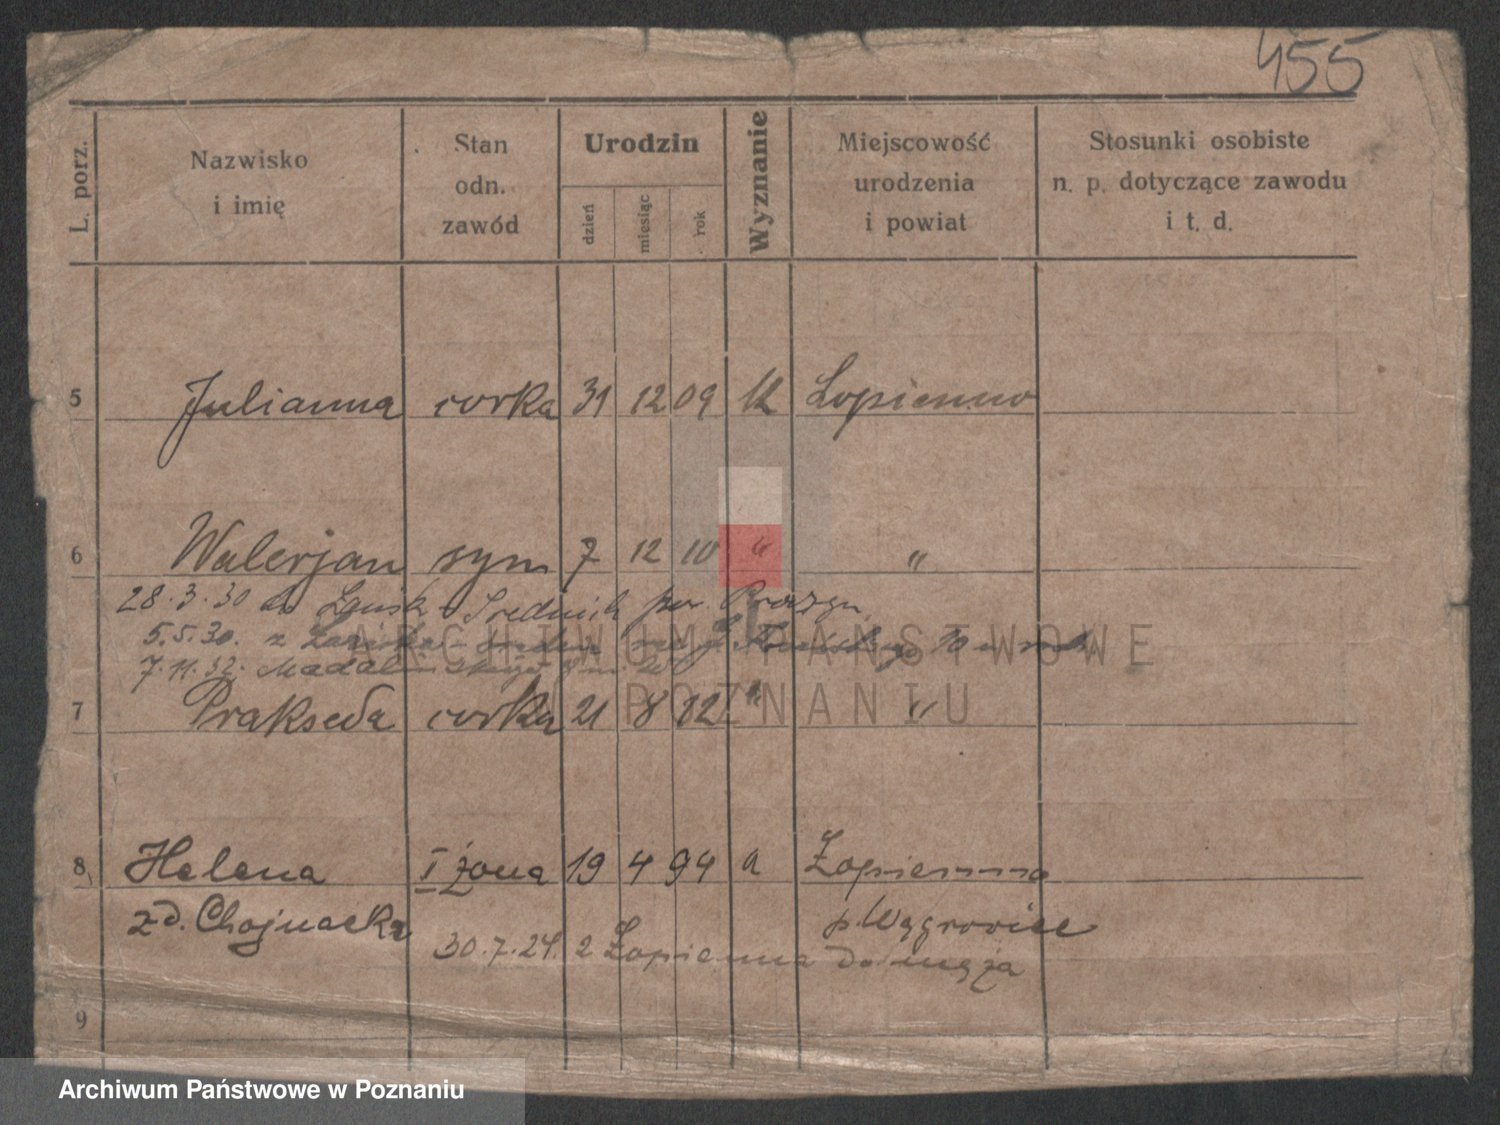 455
L. porz.
Nazwisko i imię
Stan odn. zawód
Urodzin
dzień
miesiąc
rok
Wyznanie
Miejscowość urodzenia i powiat
Stosunki osobiste n. p. dotyczące zawodu i t. d.
5 Julianna corka 31 12 09 k Łopienno
6 Walerjan syn 7 12 10 " "
28.3.30 do
5.5.30. z 10
7.11.32.
ARCHIWUM PAŃSTWOWE
POZNANIU
7 Prakseda corka 21 8 12 " "
8 Helena I żona 19 4 94 a Łopienno
zd. Chojnacka p. Wągrowiec
30.7.24. z Łopienna do męża
9
Archiwum Państwowe w Poznaniu